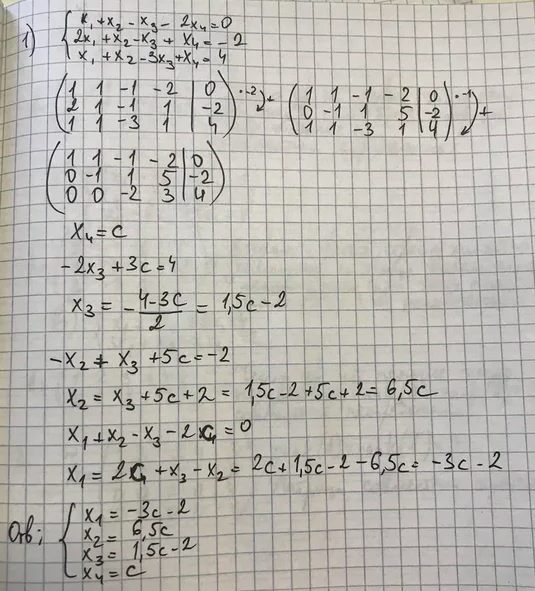 1) { x₁ + x₂ - x₃ - 2x₄ = 0
2x₁ + x₂ - x₃ + x₄ = -2
x₁ + x₂ - 3x₃ + x₄ = 4
( 1 1 -1 -2 | 0 ) ·-2 + ( 1 1 -1 -2 | 0 ) ·-1 +
( 2 1 -1 1 | -2 ) ( 0 -1 1 5 | -2 )
( 1 1 -3 1 | 4 ) ( 1 1 -3 1 | 4 )
( 1 1 -1 -2 | 0 )
( 0 -1 1 5 | -2 )
( 0 0 -2 3 | 4 )
x₄ = c
-2x₃ + 3c = 4
x₃ = - (4-3c)/2 = 1,5c - 2
-x₂ + x₃ + 5c = -2
x₂ = x₃ + 5c + 2 = 1,5c - 2 + 5c + 2 = 6,5c
x₁ + x₂ - x₃ - 2c = 0
x₁ = 2c + x₃ - x₂ = 2c + 1,5c - 2 - 6,5c = -3c - 2
Отв: { x₁ = -3c - 2
x₂ = 6,5c
x₃ = 1,5c - 2
x₄ = c